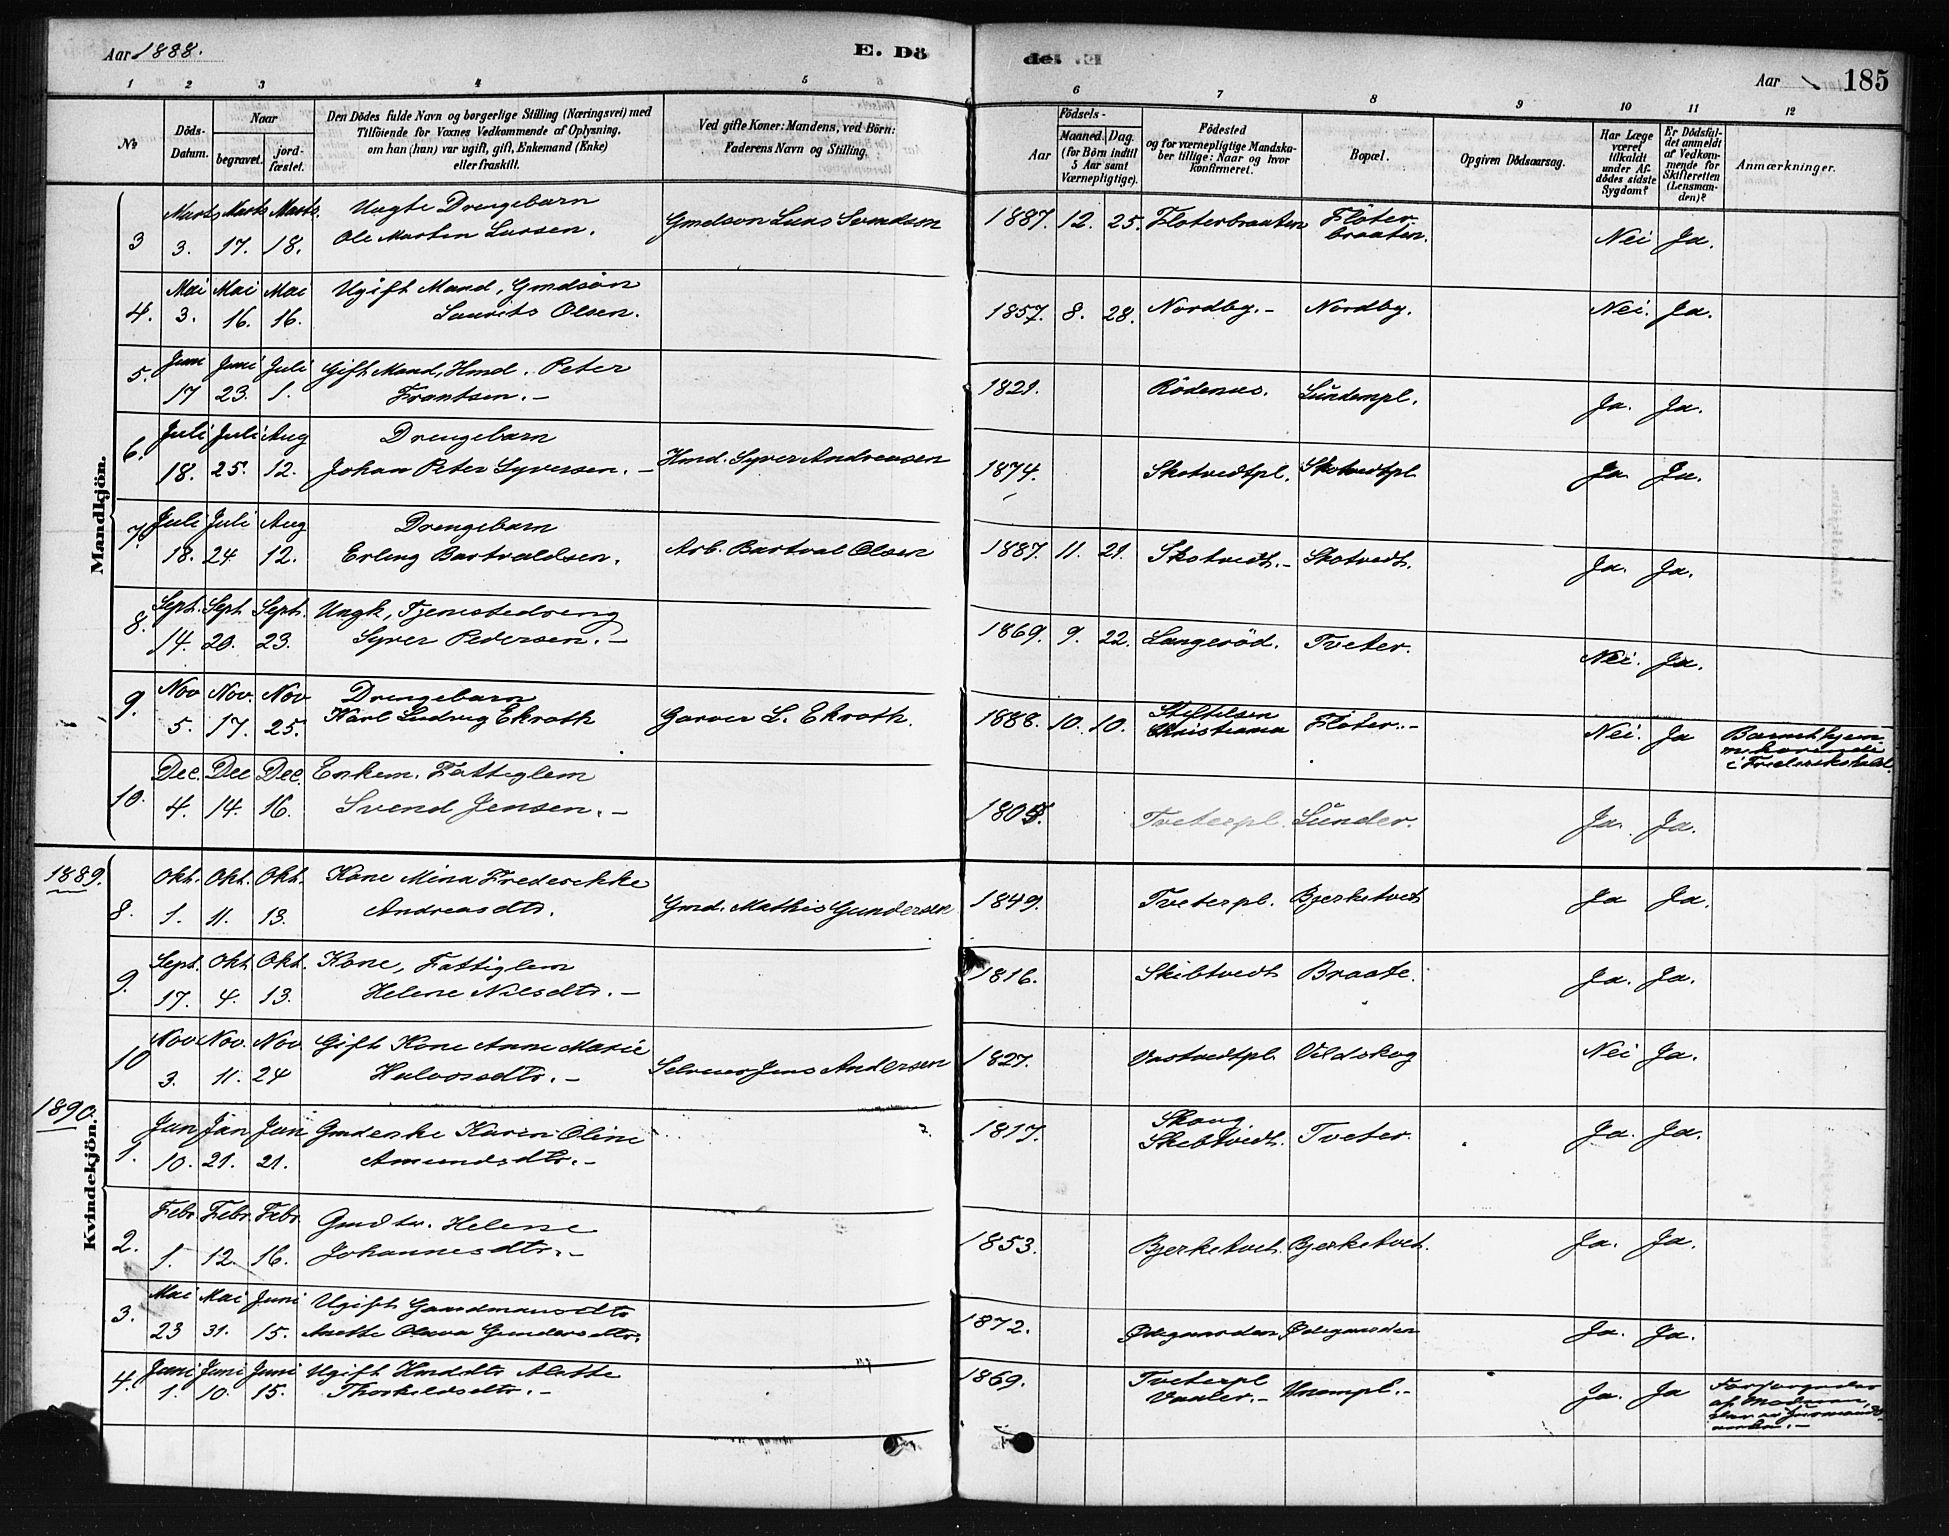 Aar 1888. E. Dö
del .E Aar 185
1 2 3 4 5 6 7 8 9 10 11 12
No
Döds-Datum.
Naar
begravet.
jord-fæstet.
Den Dödes fulde Navn og borgerlige Stilling (Næringsvei) med
Tilföiende for Voxnes Vedkommende af Oplysning,
om han (hun) var ugift, gift, Enkemand (Enke)
eller fraskilt.
Ved gifte Koner: Mandens, ved Börn:
Faderens Navn og Stilling.
Födsels-
Aar
Maaned. Dag.
(for Börn indtil
5 Aar samt
Værnepligtige).
Födested
og for værnepligtige Mandska-
ber tillige: Naar og hvor
konfirmeret.
Bopæl.
Opgiven Dödsaarsag.
Har Læge
været
tilkaldt
under Af-
dödes sidste
Sygdom?
Er Dödsfal-
det anmeldt
af Vedkom-
mende for
Skifteretten
(Lensman-
den)?
Anmærkninger.
Mandkjön.
3 Marts 3. Marts 17. Marts 18. Ungte Drengebarn
Ole Marten Larsen. Gmdsøn Lars Svendsen 1887. 12. 25. Fløterbraaten Fløter-
braaten. Nei Ja.
4. Mai 3. Mai 16. Mai 16. Ugift Mand, Gmdsøn
Laurits Olsen. 1857. 8. 28. Nordby.- Nordby. Nei. Ja.
5. Juni 17 Juni 23. Juli 1. Gift Mand, Hmd. Peter
Frantsen.- 1821. Rödenes. Lundempl. Ja. Ja.
6. Juli 18. Juli 25. Aug 12. Drengebarn
Johan Peter Syversen.- Hmd. Syver Andreasen 1874. Skotvedtpl. Skotvedtpl Ja. Ja.
7. Juli 18. Juli 24. Aug 12. Drengebarn
Erling Bartvaldsen. Arb. Bartval Olsen 1887. 11. 21. Skotvedt.- Skotvedt. Ja. Ja.
8. Sept. 14. Sept 20. Sept. 23. Ungk, Tjenestedreng
Syver Pedersen.- 1869. 9. 22. Langeröd. Tveter. Nei. Ja.
9. Nov 5. Nov. 17. Nov 25. Drengebarn
Karl Ludvig Ekroth Garver L. Ekroth. 1888. 10. 10. Stiftelsen
Christiania Fløter.- Nei. Ja Barnet hjem-
mehørende
i Fredrikshald.
10. Dec. 4. Dec 14. Dec. 16. Enkem. Fattiglem
Svend Jensen.- 1805. Tveterpl. Lunder. Ja. Ja.
Kvindekjön.
1889.
8. Okt. 1. Okt. 11. Okt. 13. Kone Mina Frederikke
Andreasdtr. Gmd. Mathis Gundersen 1849. Tveterpl. Bjerketvet Ja Ja.
9. Sept. 17. Okt 4. Okt. 13. Kone, Fattiglem
Helene Nilsdtr.- 1816. Skibtvedt Braate. Ja. Ja.
10 Nov 3. Nov. 11. Nov 24 Gift Kone Anne Marie
Halvorsdtr.- Selveier Jens Andersen 1827. Vestvedtpl Vildskog Nei Ja.
1890.
1. Jan 10. Jan 21. Jan 21. Gmdenke Karen Oline
Amundsdtr.- 1817. Skaug.
Skibtvedt. Tveter. Ja. Ja.
2. Febr. 1. Febr 12. Febr 16. Gmdtr. Helene
Johannesdtr.- 1853. Bjerketvet. Bjerketvet. Ja. Ja.
3. Mai 23 Mai 31. Juni 15. Ugift Gaardmandsdtr
Anette Olava Gundersdtr. 1872. Ødegaarden Ødegaarden Ja. Ja.
4. Juni 1. Juni 10. Juni 15. Ugift Hmdsdtr Alette
Thorkildsdtr.- 1869. Tveterpl
Vaaler.- Ja. Ja Forsørgedes
af Moderen,